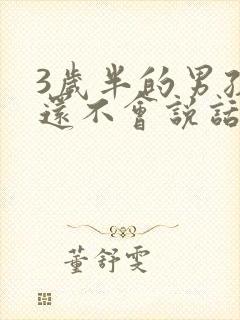 3歲半的男孩
還不會說話
董舒雯